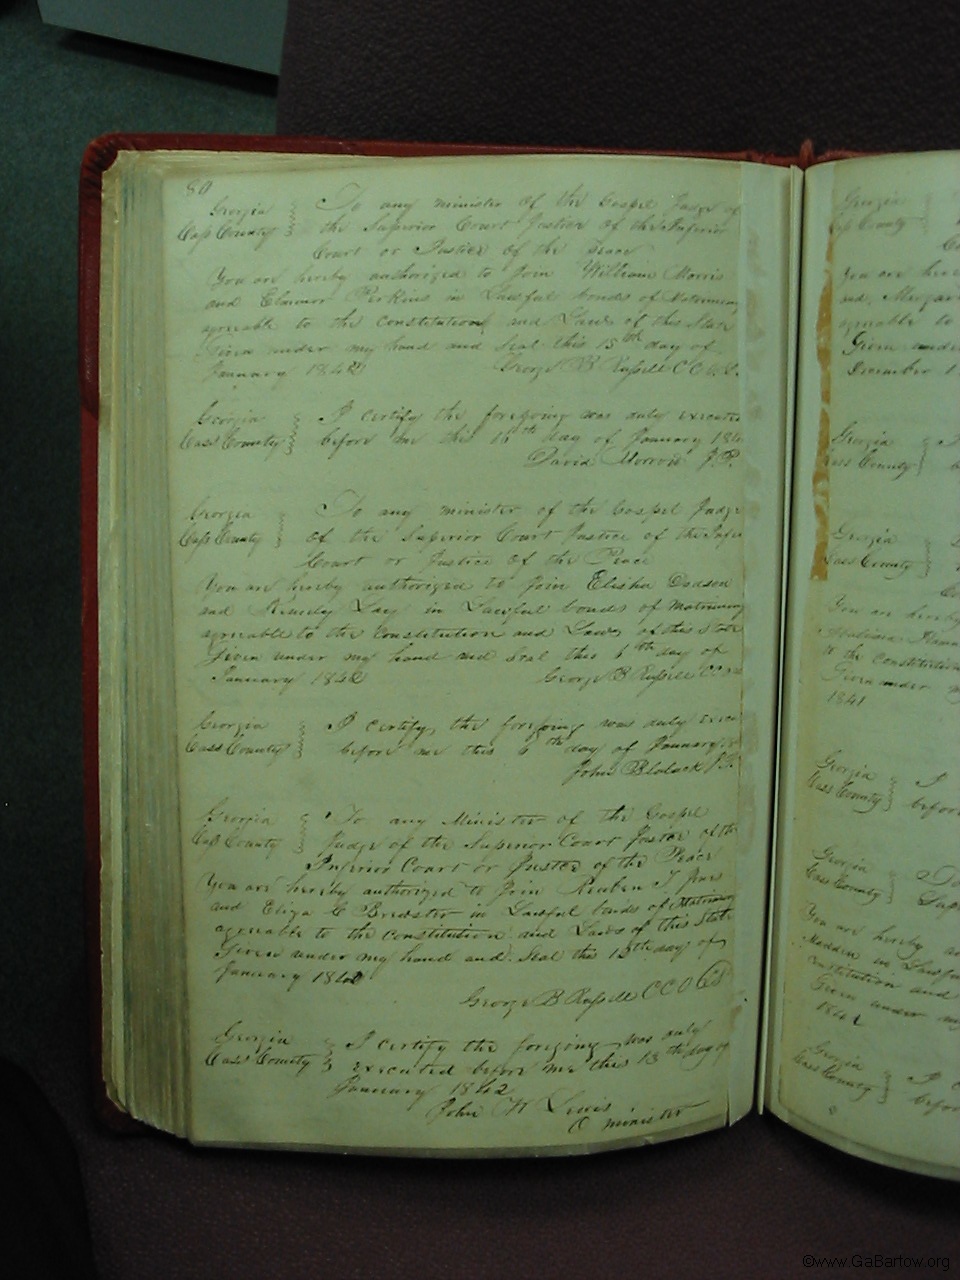 80
Georgia To any minister of the Gospel Judge of
Cass County the Superior Court Justice of the Inferior
Court or Justice of the peace
You are hereby authorized to Join William Morris
and Eleanor Perkins in Lawful bonds of Matrimony
agreeable to the Constitution and Laws of this State
Given under my hand and Seal this 15th day of
January 1842 George B Russell C C O
Georgia I certify the foregoing was duly execute
Cass County before me this 16th day of January 184
David Morris J.P.
Georgia To any minister of the Gospel Judge
Cass County of the Superior Court Justice of the Infe
Court or Justice of the Peace
You are hereby authorized to Join Elisha Dodson
and Lay in Lawful bonds of Matrimony
agreeable to the Constitution and Laws of this State
Given under my hand and Seal this 6th day of
January 1842 George B Russell C C O
Georgia I certify the foregoing was duly execu
Cass County before me this 6th day of January
John Blalock J.P.
Georgia To any Minister of the Gospel
Cass County Judge of the Superior Court Justice of the
Inferior Court or Justice of the Peace
You are hereby authorized to Join Reuben T
and Eliza C Brewster in Lawful bonds of Matrimony
agreeable to the Constitution and Laws of this State
Given under my hand and Seal this 13th day of
January 1842
George B Russell C C O
Georgia I certify the foregoing was duly
Cass County executed before me this 13th day of
January 1842
John W Lewis
O minister
Georgia
Cass County
You are
and
agreeable to
Given under
December 1
Georgia
Cass County
Georgia
Cass County
You are hereby
to the constitution
Given under
1841
Georgia I
Cass County before
Georgia To
Cass County
You are hereby
Madden in Lawful
constitution and
Given under my
Georgia
Cass County before
©www.GaBartow.org